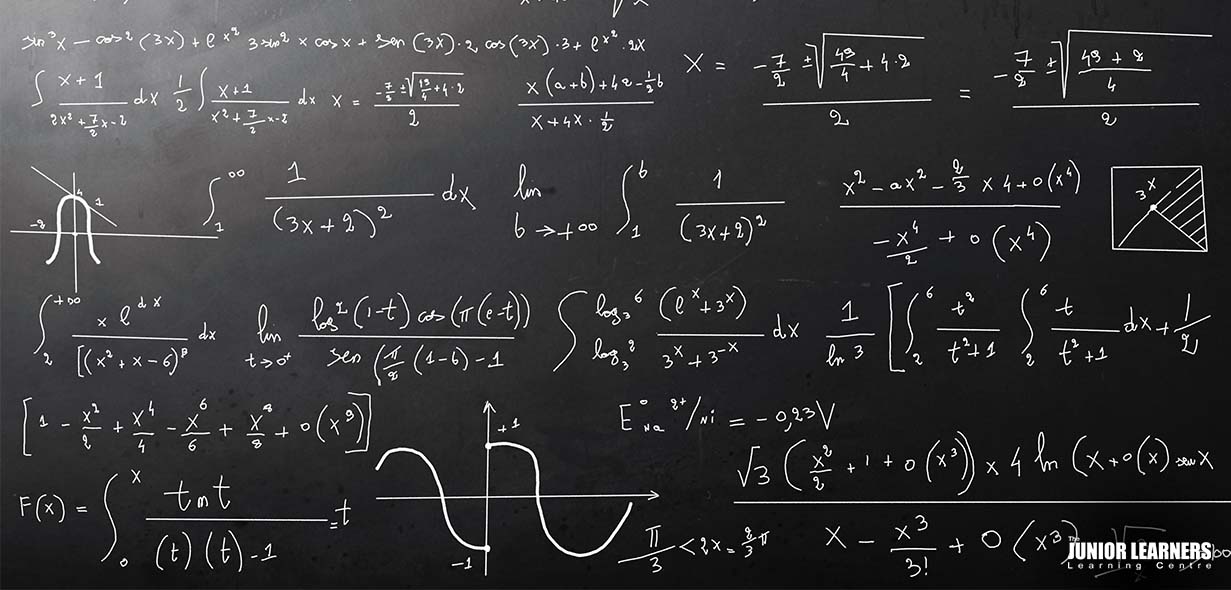 sin³x − cos²(3x) + e^x² 3sin²x cosx + sen(3x)·2 cos(3x)·3 + e^x²·2x
∫ (x+1)/(2x² + 7/2 x − 2) dx 1/2 ∫ (x+1)/(x² + 7/2 x − 2) dx x = (−7/2 ± √(49/4 + 4·2))/2 (x(a+b) + 42 − 1/2 b)/(x + 4x · 1/2) X = (−7/2 ± √(49/4 + 4·2))/2 = (−7/2 ± √((49 + 2)/4))/2
4 1 −2
∫₁^∞ 1/(3x+2)² dx lim b→+∞ ∫₁^b 1/(3x+2)² (x² − ax² − 2/3 x4 + o(x⁴))/(−x⁴/2 + o(x⁴))
3 x
∫₂^+∞ x e^dx/[(x²+x−6)^β dx lim t→0⁺ log²(1−t) cos(π(e−t))/sen(π/2 (1−6)−1 ∫ log₃6 log₃2 (e^x + 3^x)/(3^x + 3^−x) dx 1/ln 3 [∫₂^6 t²/(t²+1) ∫₂^6 t/(t²+1) dx + 1/2
[1 − x²/2 + x⁴/4 − x⁶/6 + x⁸/8 + o(x⁹)]
+1
−1
E° Na 2+/Ni = −0,23V
F(x) = ∫₀^x tnt/((t)(t)−1) = t
π/3 < 2x = 2/3 π
√3 (x²/2 + 1 + o(x³)) × 4 ln (x + o(x) sen x
x − x³/3! + o(x³)
The
JUNIOR LEARNERS
Learning Centre